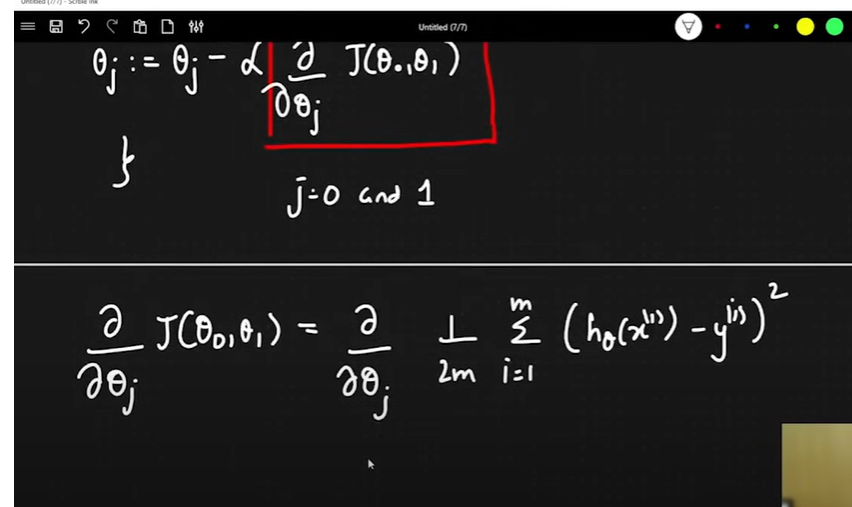 Untitled (7/7) - Scrible Ink
Untitled (7/7)
θj := θj - α ∂/∂θj J(θ0,θ1)
}
j=0 and 1
∂/∂θj J(θ0,θ1) = ∂/∂θj 1/2m Σ_{i=1}^{m} (hθ(x^(i)) - y^(i))^2